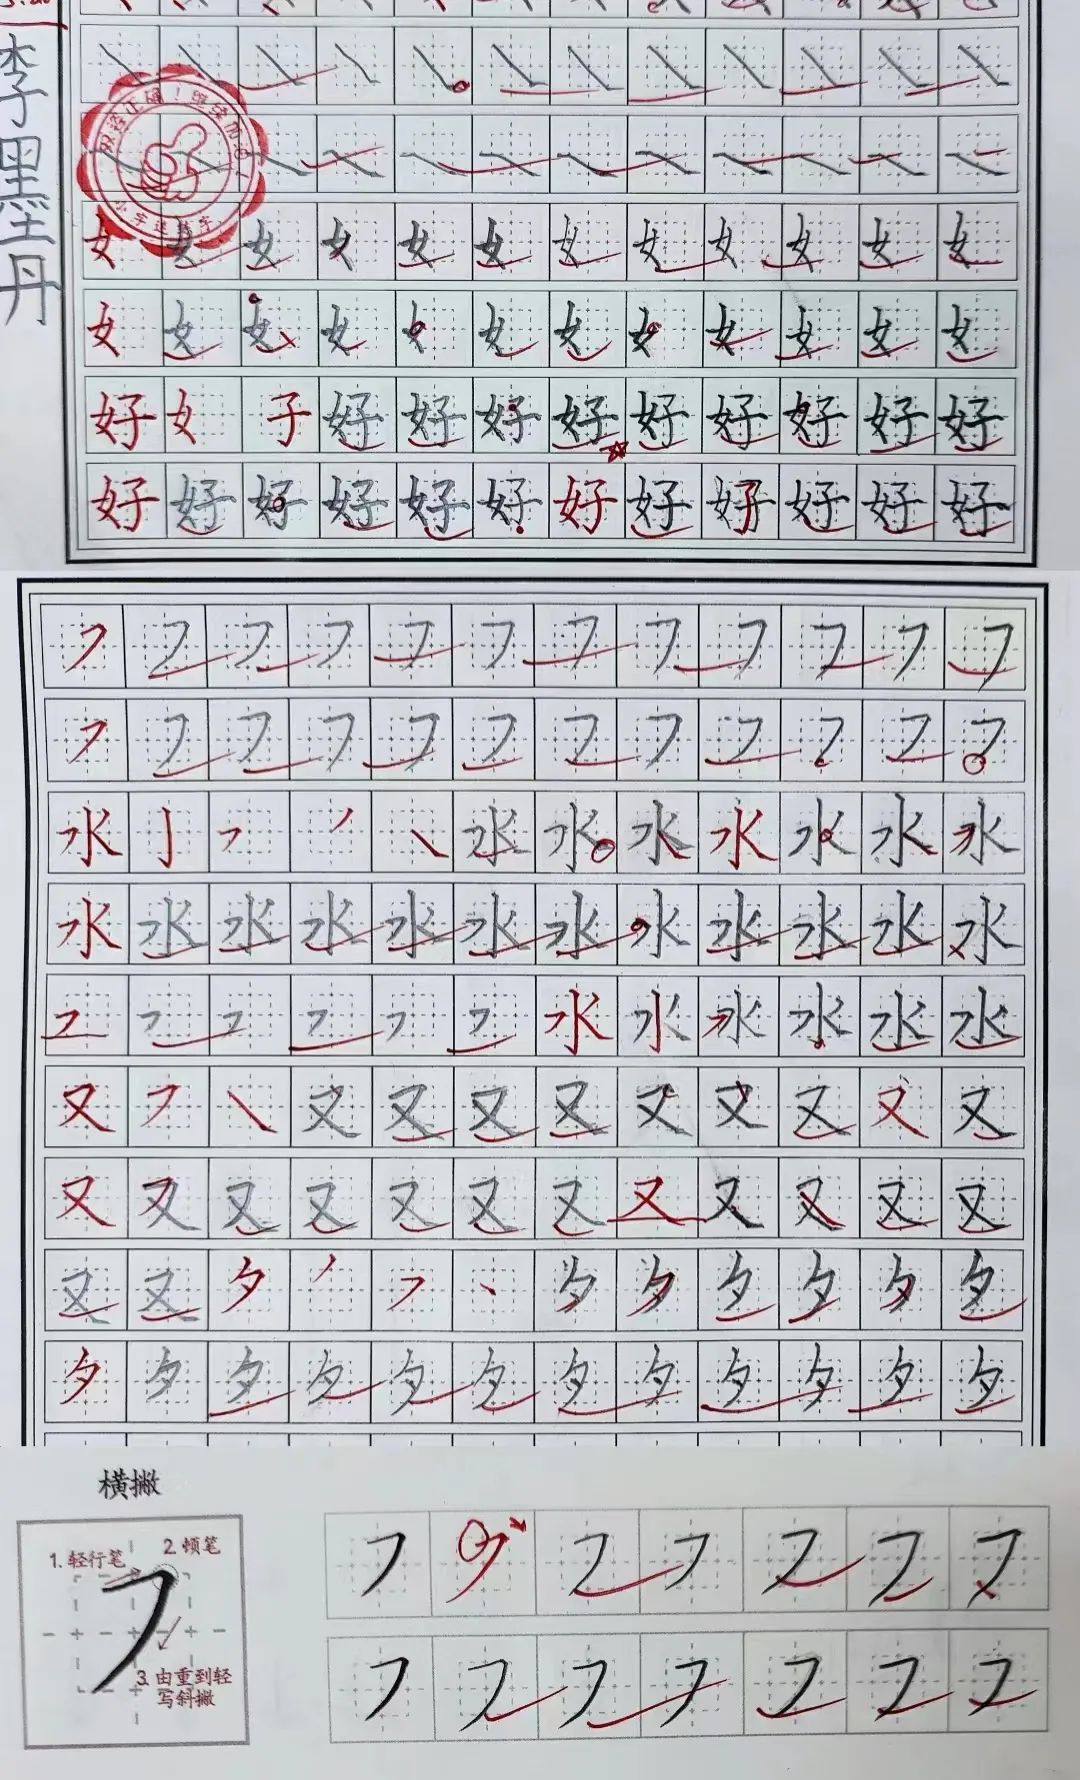 李墨丹
女 女 女 女 女 女 女 女 女 女 女 女
女 女 女 女 女 女 女 女 女 女 女 女
好 女 子 好 好 好 好 好 好 好 好 好
好 好 好 好 好 好 好 好 好 好 好 好
水 亅 水 水 水 水 水 水 水
水 水 水 水 水 水 水 水 水 水 水 水
水 水 水 水 水 水
又 又 又 又 又 又 又 又 又 又
又 又 又 又 又 又 又 又 又 又 又 又
又 又 夕 夕 夕 夕 夕 夕 夕
夕 夕 夕 夕 夕 夕 夕 夕 夕 夕 夕 夕
横撇
1. 轻行笔
2. 顿笔
3. 由重到轻
写斜撇